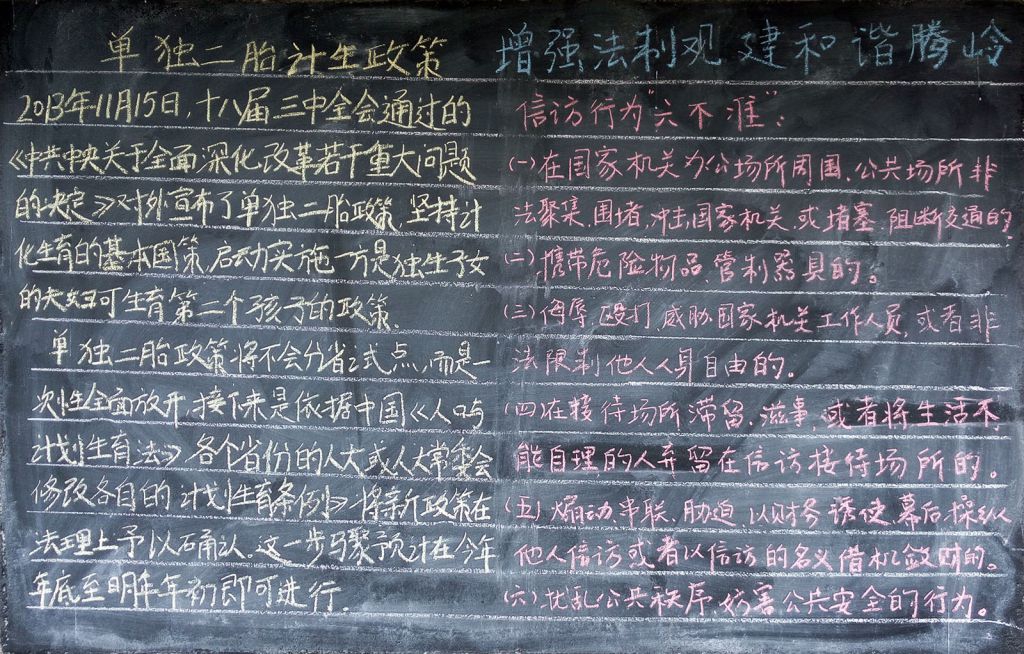 单独二胎计生政策
2013年11月15日,十八届三中全会通过的
《中共中央关于全面深化改革若干重大问题
的决定》对外宣布了单独二胎政策,坚持计
化生育的基本国策,启动实施一方是独生子女
的夫妇可生育第二个孩子的政策。
单独二胎政策将不会分省试点,而是一
次性全面放开,接下来是依据中国《人口与
计划生育法》各个省份的人大或人大常委会
修改各自的《计划生育条例》将新政策在
法理上予以确认。这一步骤预计在今年
年底至明年年初即可进行.
增强法制观 建和谐腾岭
信访行为"六不准":
(一)在国家机关办公场所周围、公共场所非
法聚集,围堵,冲击,国家机关,或堵塞,阻断交通的
(二)携带危险物品,管制器具的。
(三)侮辱,殴打,威胁国家机关工作人员,或者非
法限制他人人身自由的。
(四)在接待场所滞留,滋事,或者将生活不
能自理的人弃留在信访接待场所的。
(五)煽动串联,胁迫,以财务诱使,幕后操纵
他人信访或者以信访的名义借机敛财的。
(六)扰乱公共秩序妨害公共安全的行为。